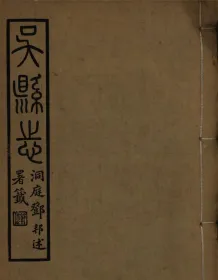 吳縣志
洞庭鄧邦述
署籤